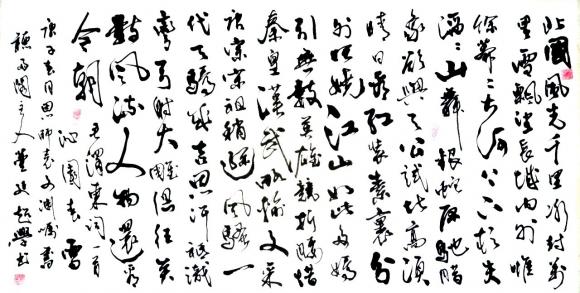 北國風光千里冰封萬
里雪飄望長城內外惟
餘莽莽大河上下頓失
滔滔山舞銀蛇原馳臘
象欲與天公試比高須
晴日看紅裝素裹分
外妖嬈江山如此多嬌
引無數英雄競折腰惜
秦皇漢武略輸文采
唐宗宋祖稍遜風騷一
代天驕成吉思汗祗識
彎弓射大雕俱往矣
數風流人物還看
今朝 毛澤東詞一首
沁園春 雪
庚子春月恩師袁文淵囑書
聽雨閣主人董學書